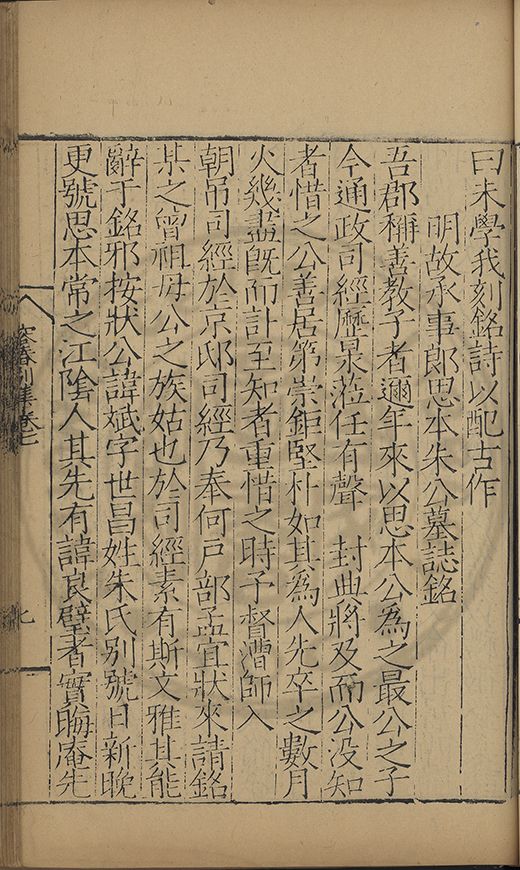 曰未學我刻銘詩以配古作
明故承事郎思本朱公墓誌銘
吾郡稱善教子者邇年來以思本公為之最公之子
今通政司經歷杲蒞任有聲 封典將及而公沒知
者惜之公善居第崇鉅堅朴如其為人先卒之數月
火幾盡既而訃至知者重惜之時予督漕師入
朝吊司經於京邸司經乃奉何戶部孟宜狀來請銘
某之曾祖母公之族姑也於司經素有斯文雅其能
辭于銘邪按狀公諱斌字世昌姓朱氏別號日新晚
更號思本常之江陰人其先有諱良璧者實晦庵先